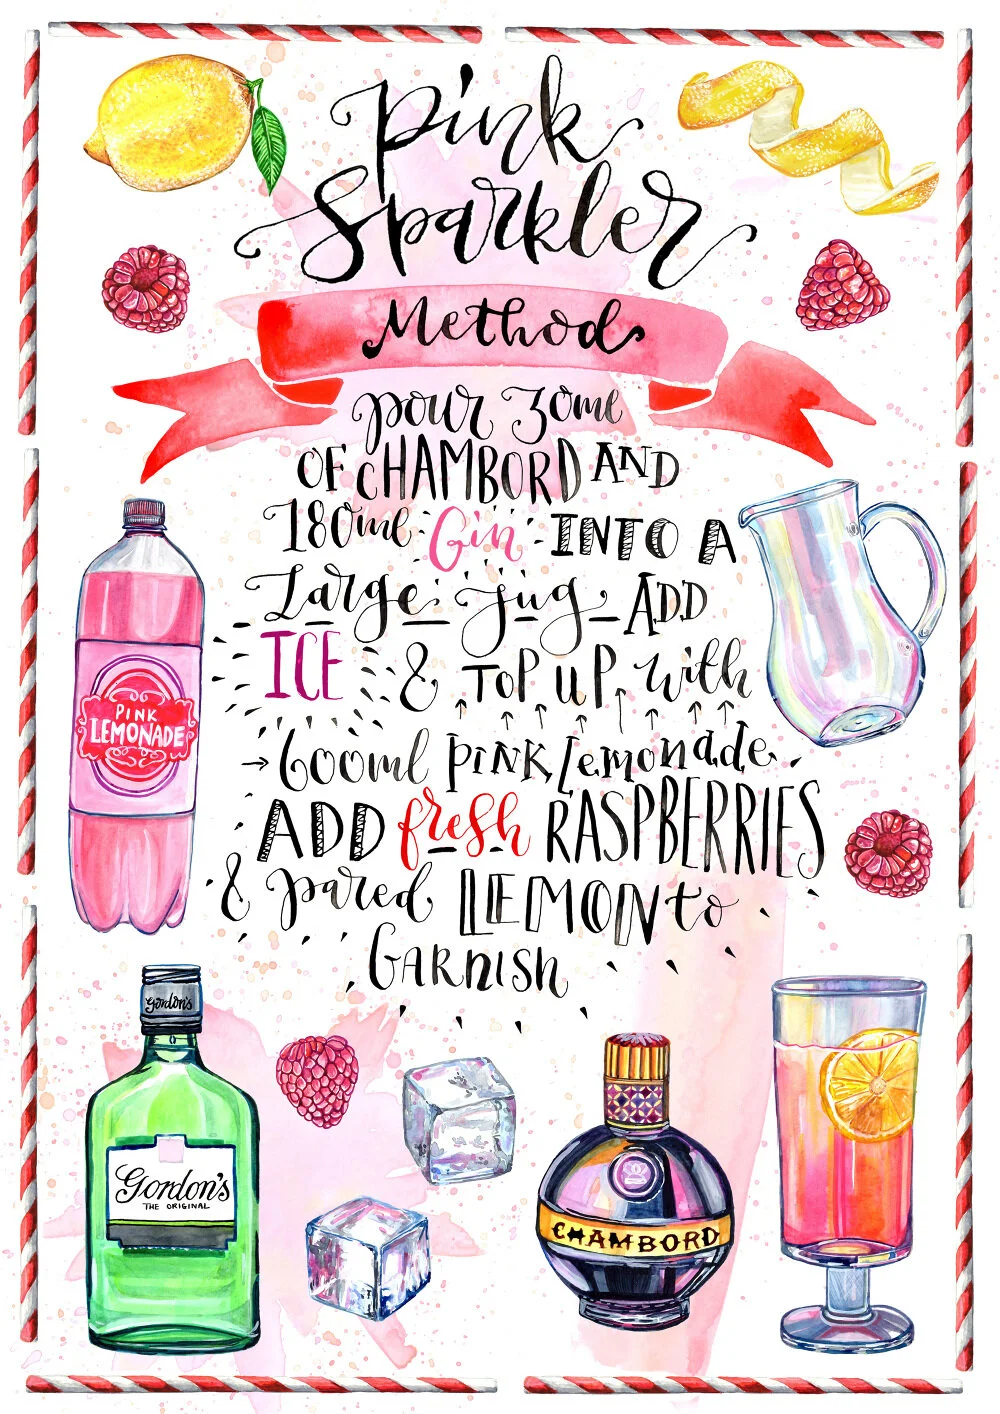 Pink
Sparkler
Method
pour 30ml
OF CHAMBORD AND
180ml Gin INTO A
Large Jug ADD
ICE & TOP UP with
600ml PINK Lemonade
ADD fresh RASPBERRIES
& pared LEMON to
GARNISH
PINK
LEMONADE
Gordon's
Gordon's
THE ORIGINAL
CHAMBORD